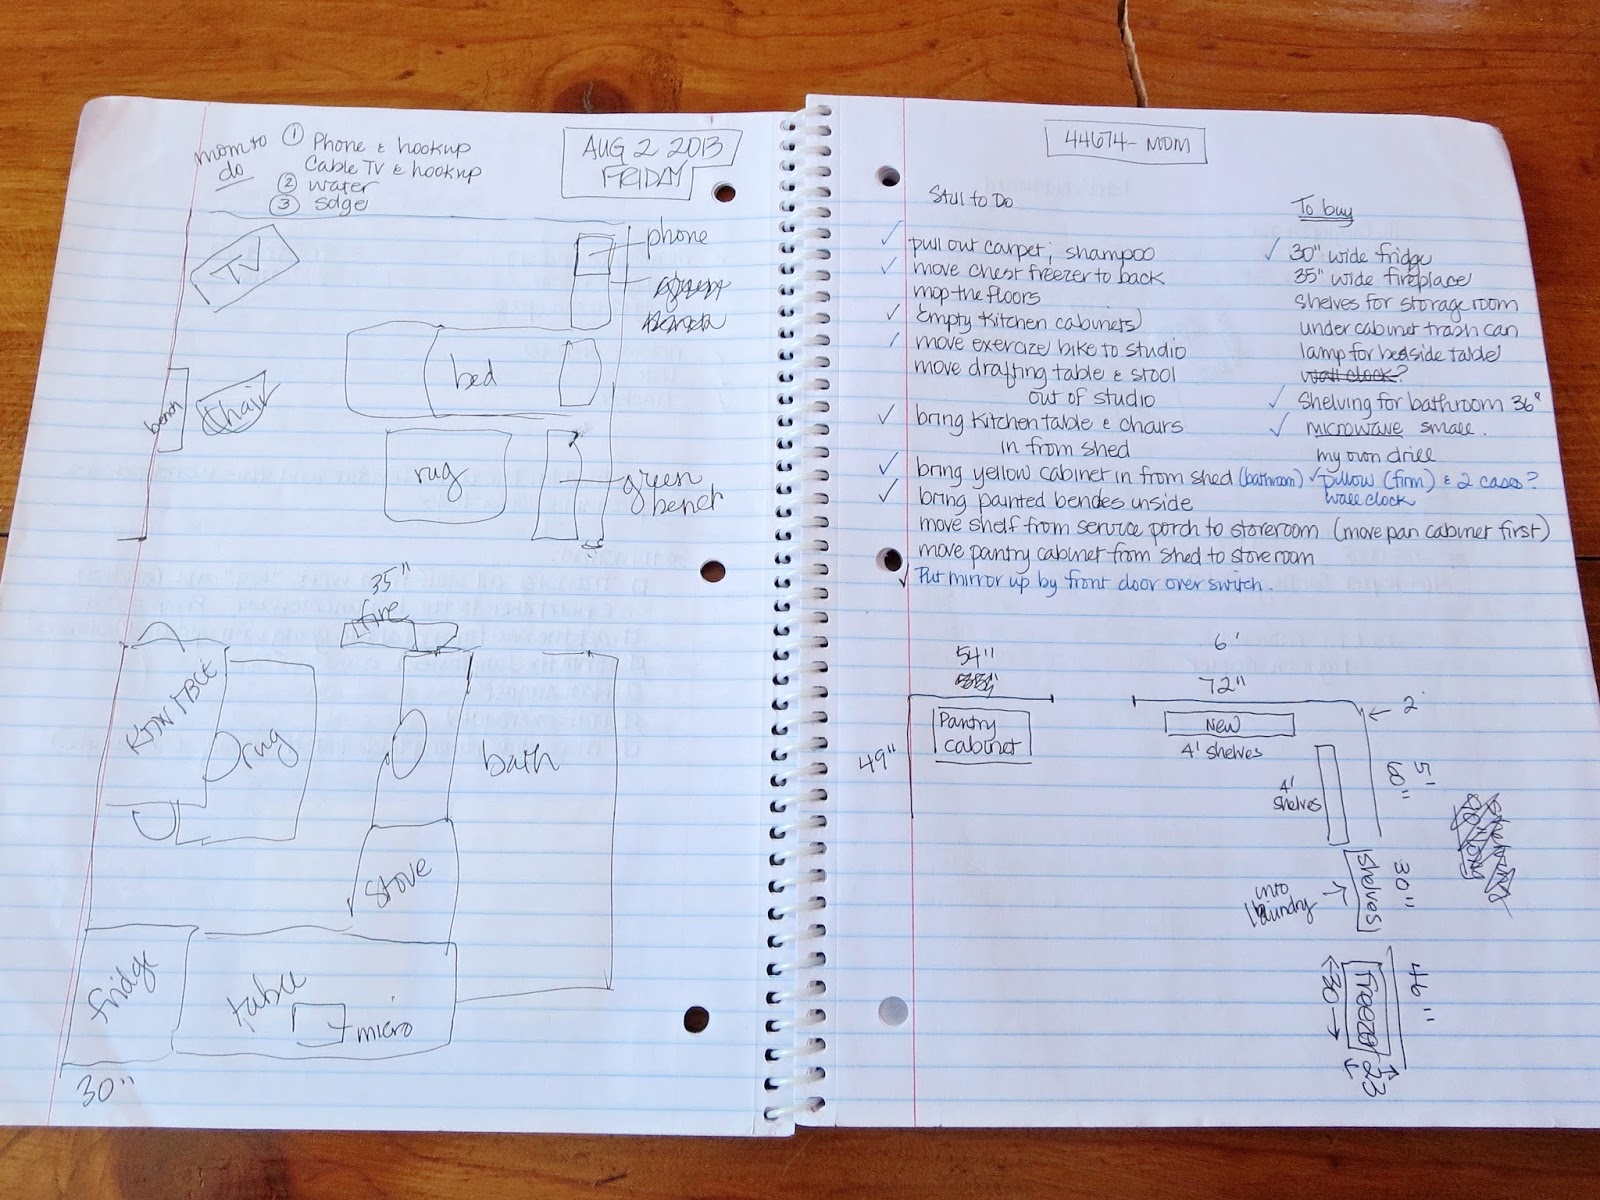 mom to do
① Phone & hookup
Cable TV & hookup
② water
③ sdge
AUG 2 2013
FRIDAY
TV
phone
bed
bench
chair
rug
green
bench
35"
fire
rug
bath
stove
fridge
table
micro
30"
44674- MOM
Still to Do
✓ pull out carpet; shampoo
✓ move chest freezer to back
mop the floors
✓ Empty Kitchen cabinets
✓ move exercize bike to studio
move drafting table & stool
out of studio
✓ bring Kitchen table & chairs
in from shed
✓ bring yellow cabinet in from shed (bathroom)
✓ bring painted bendes inside
move shelf from service porch to storeroom (move pan cabinet first)
move pantry cabinet from shed to storeroom
✓ Put mirror up by front door over switch.
To buy
✓ 30" wide fridge
35" wide fireplace
shelves for storage room
under cabinet trash can
lamp for bedside table
wall clock?
✓ Shelving for bathroom 36"
✓ microwave small.
my own drill
✓ pillow (firm) & 2 cases?
wall clock
54"
Pantry
cabinet
49"
6'
72"
2
NEW
4' shelves
4'
shelves
5'
8"
30"
shelves
into
laundry
46"
freezer
30
23